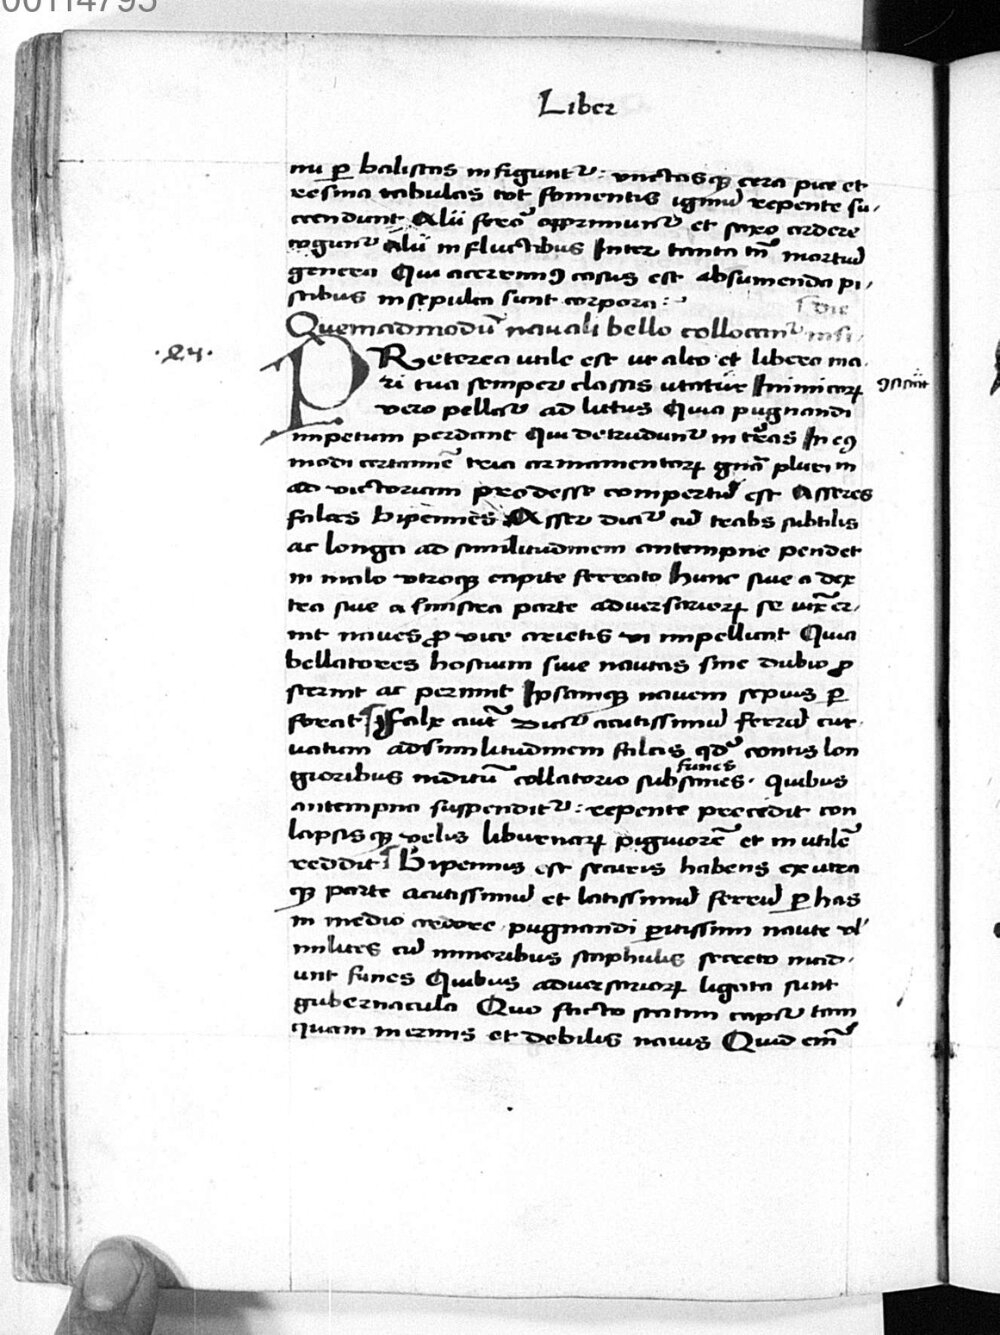 00114795
Liber
nu ꝑ balistas infigunt᷑: vnctasqꝫ cera pice et
resina tabulas tot fomentis igniũ repente su,
ccendunt Alii ferõ opprimunt᷑ et saxo ardere
cogunt᷑ Alii in fluctibus Inter tanta tñ mortiũ
genera Qui acerrimꝯ casus est absumenda pi,
scibus insepulta sunt corpora:
Quemadmodũ navali bello collocant᷑ insi,
die
.24.
PReterea utile est ut alto et libero ma
ri tua semper classis utatur Inimicoꝝ
vero pellat᷑ ad litus Quia pugnandi
impetum perdunt Qui detrudunt᷑ in t̃ras In eiꝰ
modi certamine᷑ tria armamentoꝝ gñа plurim
ad victoriam prodesse compertũ est Asseres
falces bipennes Asser dicit᷑ cũ trabs subtilis
ac longa ad similitudinem antempne pendet
in malo utroqꝫ capite ferrato hunc siue a dex
tra siue a sinistra parte adversarioꝝ se iũxer,
int naves ꝓ vice arietis vi impellunt Quia
bellatores hostium siue nautas sine dubio ꝓ
sternit ac perimit Ipsamqꝫ navem sepius ꝑ
forat Falx aut̃ dicit᷑ acutissimũ ferrũ cur
vatum ad similitudinem falcis qđ contis lon
gioribus inditũ collatorio subsanes. quibus
funes
antempna suspendit᷑: repente precedit con
lapsisqꝫ velis liburnaꝝ pigriorẽ et inutilẽ
reddit Bipennis est securis habens ex utra
qꝫ parte acutissimũ et latissimũ ferrũ ꝑ has
in medio ardore pugnandi ꝑitissimi naute vl'
milites cũ minoribus scaphulis secreto incid,
unt funes Quibus adversarioꝝ ligata sunt
gubernacula Quo facto statim capit᷑ tam
quam inermis et debilis navis Quid em̃